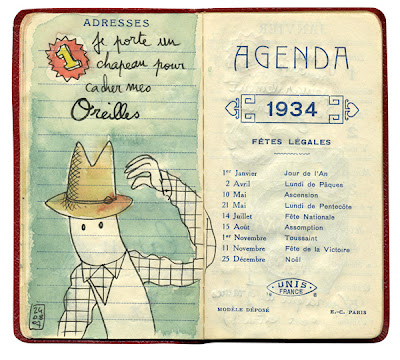 ADRESSES
1
Je porte un
chapeau pour
cacher mes
Oreilles
24
08
09
AGENDA
1934
FÊTES LÉGALES
1er Janvier Jour de l'An
2 Avril Lundi de Pâques
10 Mai Ascension
21 Mai Lundi de Pentecôte
14 Juillet Fête Nationale
15 Août Assomption
1er Novembre Toussaint
11 Novembre Fête de la Victoire
25 Décembre Noël
UNIS
FRANCE
MODÈLE DÉPOSÉ E.-C. PARIS